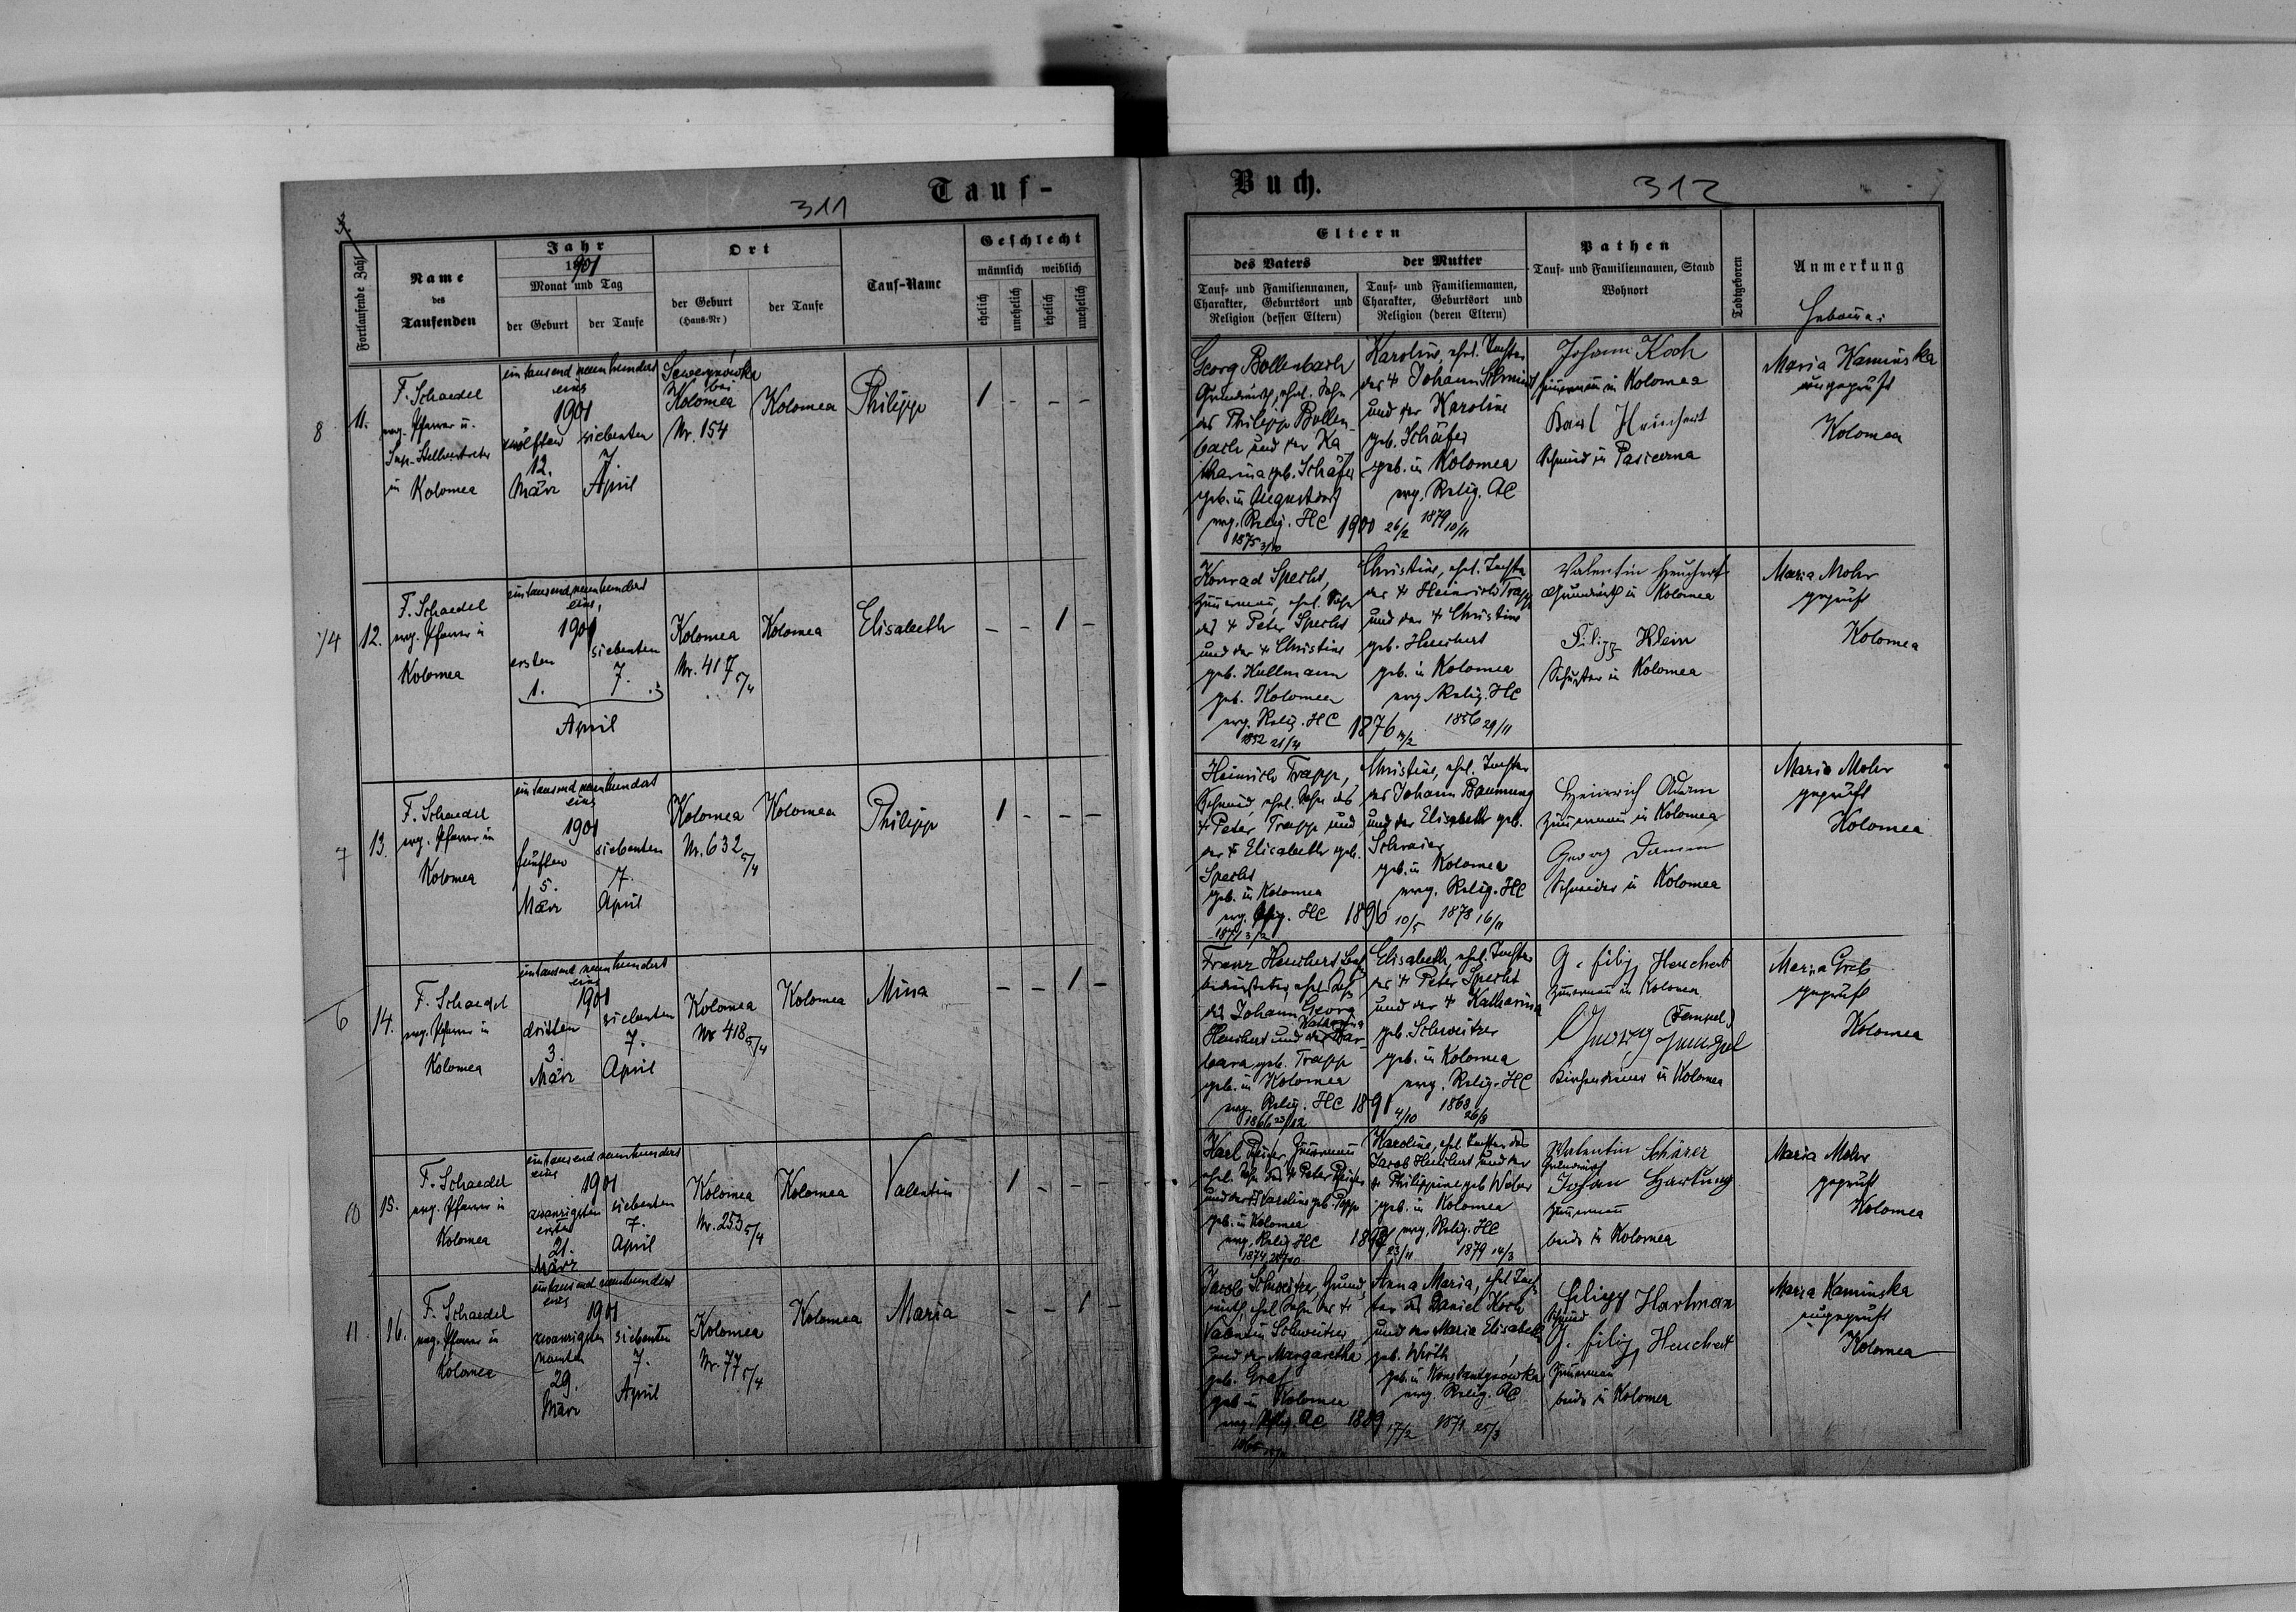 Tauf-
311
Fortlaufende Zahl
Name
des
Taufenden
Jahr
1901
Monat und Tag
der Geburt
der Taufe
Ort
der Geburt
(Haus-Nr)
der Taufe
Tauf-Name
Geschlecht
männlich weiblich
ehelich
unehelich
ehelich
unehelich
8
11.
F. Schaedel
evg. Pfarrer u.
Sup.-Stellvertreter
in Kolomea
ein tausend neunhundert
eins
1901
zwölften
12.
März
siebenten
7
April
Sewerynówka
bei
Kolomea
Nr. 154
Kolomea
Philipp
1 - - -
1/4
12.
F. Schaedel
evg. Pfarrer in
Kolomea
ein tausend neunhundert
eins,
1901
ersten
1.
siebenten
7.
April
Kolomea
Nr. 417 5/4
Kolomea
Elisabeth
- - 1 -
7
13.
F. Schaedel
evg. Pfarrer in
Kolomea
ein tausend neunhundert
eins
1901
fünften
5.
März
siebenten
7.
April
Kolomea
Nr. 632 5/4
Kolomea
Philipp
1 - - -
6
14.
F. Schaedel
evg. Pfarrer in
Kolomea
eintausend neunhundert
eins
1901
dritten
3.
März
siebenten
7.
April
Kolomea
Nr 418 5/4
Kolomea
Mina
- - 1 -
10
15.
F. Schaedel
evg. Pfarrer in
Kolomea
ein tausend neunhundert
eins
1901
zwanzigsten
ersten
21.
März
siebenten
7.
April
Kolomea
Nr. 253 5/4
Kolomea
Valentin
1 - - -
11.
16.
F. Schaedel
evg. Pfarrer in
Kolomea
eintausend neunhundert
eins
1901
zwanzigsten
neunten
29.
März
siebenten
7.
April
Kolomea
Nr. 77 5/4
Kolomea
Maria
- - 1 -
Buch.
312
Eltern
des Vaters
der Mutter
Tauf- und Familiennamen,
Charakter, Geburtsort und
Religion (dessen Eltern)
Tauf- und Familiennamen,
Charakter, Geburtsort und
Religion (deren Eltern)
Pathen
Tauf- und Familiennamen, Stand
Wohnort
Todtgeboren
Anmerkung
Georg Bollenbach
Grundwirth, ehel. Sohn
des Philipp Bollen-
bach und der Ka
tharina geb. Schäfer
geb. in Augustdorf
evg. Relig. HC 1900 26/2
1875 3/10
Karoline, ehel. Tochter
des + Johann Schmidt
und der Karoline
geb. Schäfer
geb. in Kolomea
evg. Relig. AC
1879 10/11
Johann Koch
Zimmermann in Kolomea
Karl Heuchert
Schmid in Pasieczna
Maria Kaminska
ungeprüft
Kolomea
Konrad Specht,
Zimmermann, ehel. Sohn
des + Peter Specht
und der + Christine
geb. Kullmann
geb. Kolomea
evg. Relig. HC 1876
1852 21/4
Christine, ehel. Tochter
des + Heinrich Trapp
und der + Christine
geb. Heuchert
geb. in Kolomea
evg. Relig. HC
1856 29/11
Valentin Heuchert
Grundwirth in Kolomea
Filipp Klein
Schuster in Kolomea
Maria Mohr
geprüft
Kolomea
Heinrich Trapp,
Schmid, ehel. Sohn des
+ Peter Trapp und
der + Elisabeth geb.
Specht
geb. in Kolomea
evg. Relig. HC 1896 10/5
1871 3/2
Christine, ehel. Tochter
des Johann Baumung
und der Elisabeth geb.
geb. in Kolomea
evg. Relig. HC
1878 16/11
Heinrich Adam
Zimmermann in Kolomea
Georg Damm
Schneider in Kolomea
Maria Mohr
geprüft
Kolomea
Franz Heuchert,
bediensteter, ehel. Sohn
des Johann Georg
Heuchert und der Bar-
Katharina
bara geb. Trapp
geb. in Kolomea
evg. Relig. HC 1891 4/10
1866 23/12
Elisabeth, ehel. Tochter
des + Peter Specht
und der + Katharina
geb. Schweitzer
geb. in Kolomea
evg. Relig. HC
1868 26/8
G. filip Heuchert
Zimmermann in Kolomea
(Tempel)
Kirchendiener in Kolomea
Maria Greb
geprüft
Kolomea
Karl Zimmermann
ehel. Sohn des + Peter
und der + Karoline geb. Popp
geb. in Kolomea
evg. Relig. HC 1898 23/11
1874
Karoline, ehel. Tochter des
Jacob Heuchert und der
+ Philippine geb. Weber
geb. in Kolomea
evg. Relig. HC
1879 14/3
Valentin Schärer
Grundwirth
Johan Hartung
Zimmermann
beide in Kolomea
Maria Mohr
geprüft
Kolomea
Jacob Schweitzer, Grund
wirth, ehel. Sohn des +
Valentin Schweitzer
und der Margaretha
geb. Graf
geb. in Kolomea
evg. Relig. AC 1889 17/2
Anna Maria, ehel. Toch
ter des Daniel Koch
und der Maria Elisabeth
geb. Wirth
geb. in Konstantynówka
evg. Relig. AC
1871 25/3
filipp Hartman
Schmid
G. filip Heuchert
Zimmermann
beide in Kolomea
Maria Kaminska
ungeprüft
Kolomea